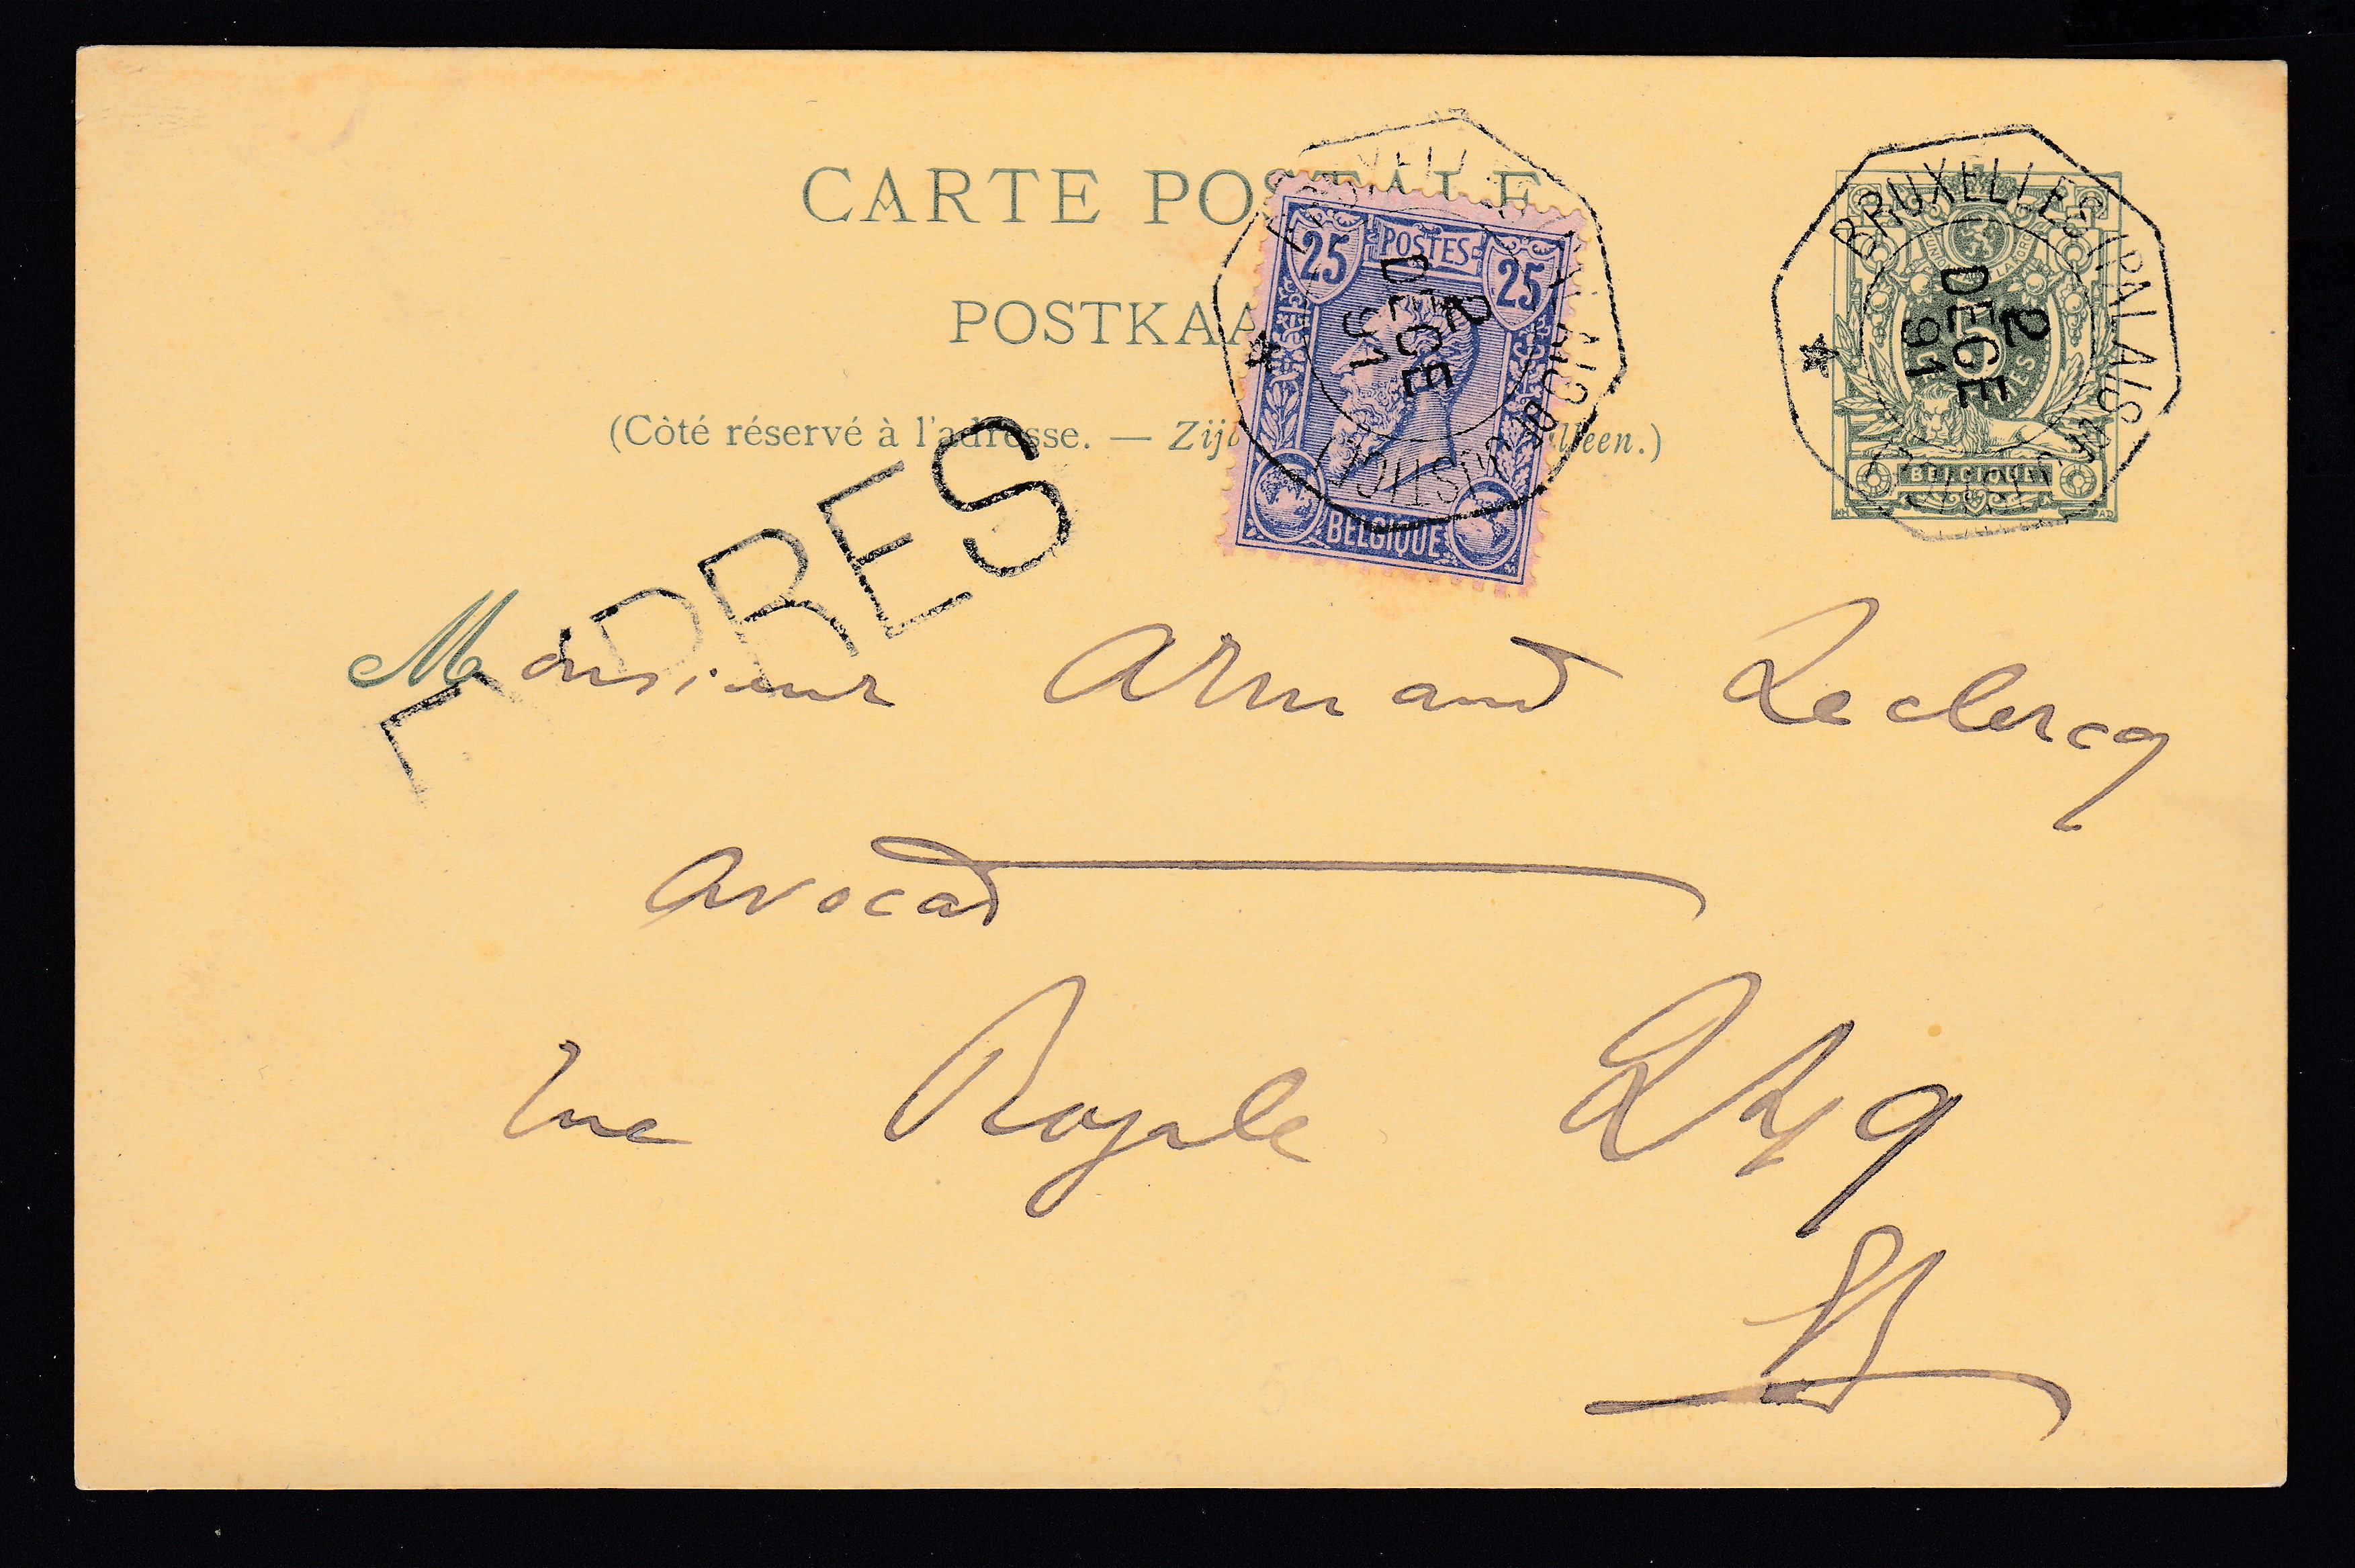 CARTE POSTALE
POSTKAA
(Côté réservé à l'adresse. — Zij lleen.)
25 POSTES 25
BELGIQUE
DECE
2
91
BRUXELLES (PALAIS
2
DECE
91
5
BELGIQUE
EXPRES
Monsieur Armand Leclercq
avocat
rue Royale